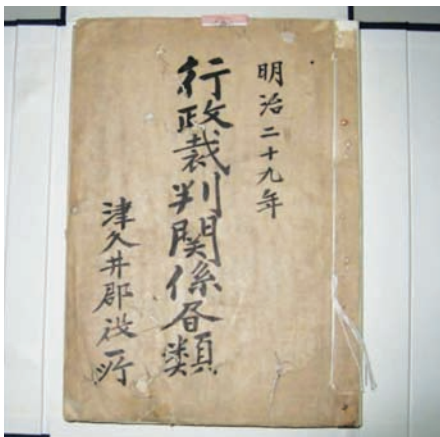 明治二十九年
行政裁判関係書類
津久井郡役所